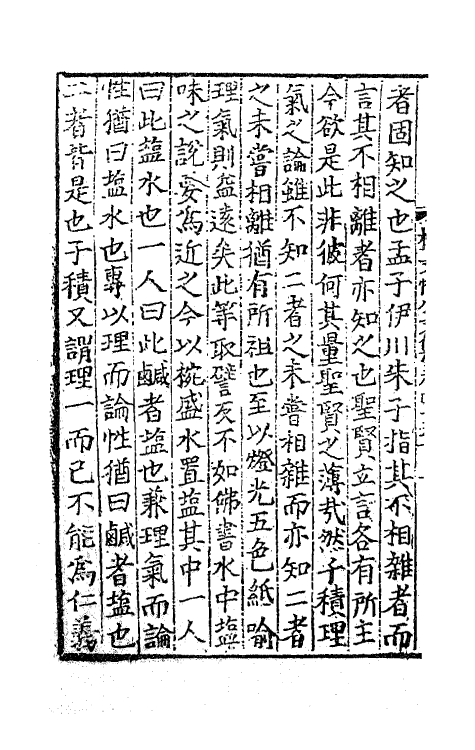 者固知之也孟子伊川朱子指其不相雜者而
言其不相離者亦知之也聖賢立言各有所主
今欲是此非彼何其量聖賢之薄㢤然子積理
氣之論雖不知二者之未嘗相雜而亦知二者
之未嘗相離猶有所祖也至以燈光五色紙喻
理氣則益遠矣此等取譬反不如佛書水中塩
味之說妄爲近之今以椀盛水置塩其中一人
曰此塩水也一人曰此鹹者塩也兼理氣而論
性猶曰塩水也專以理而論性猶曰鹹者塩也
二者皆是也子積又謂理一而已不能爲仁義